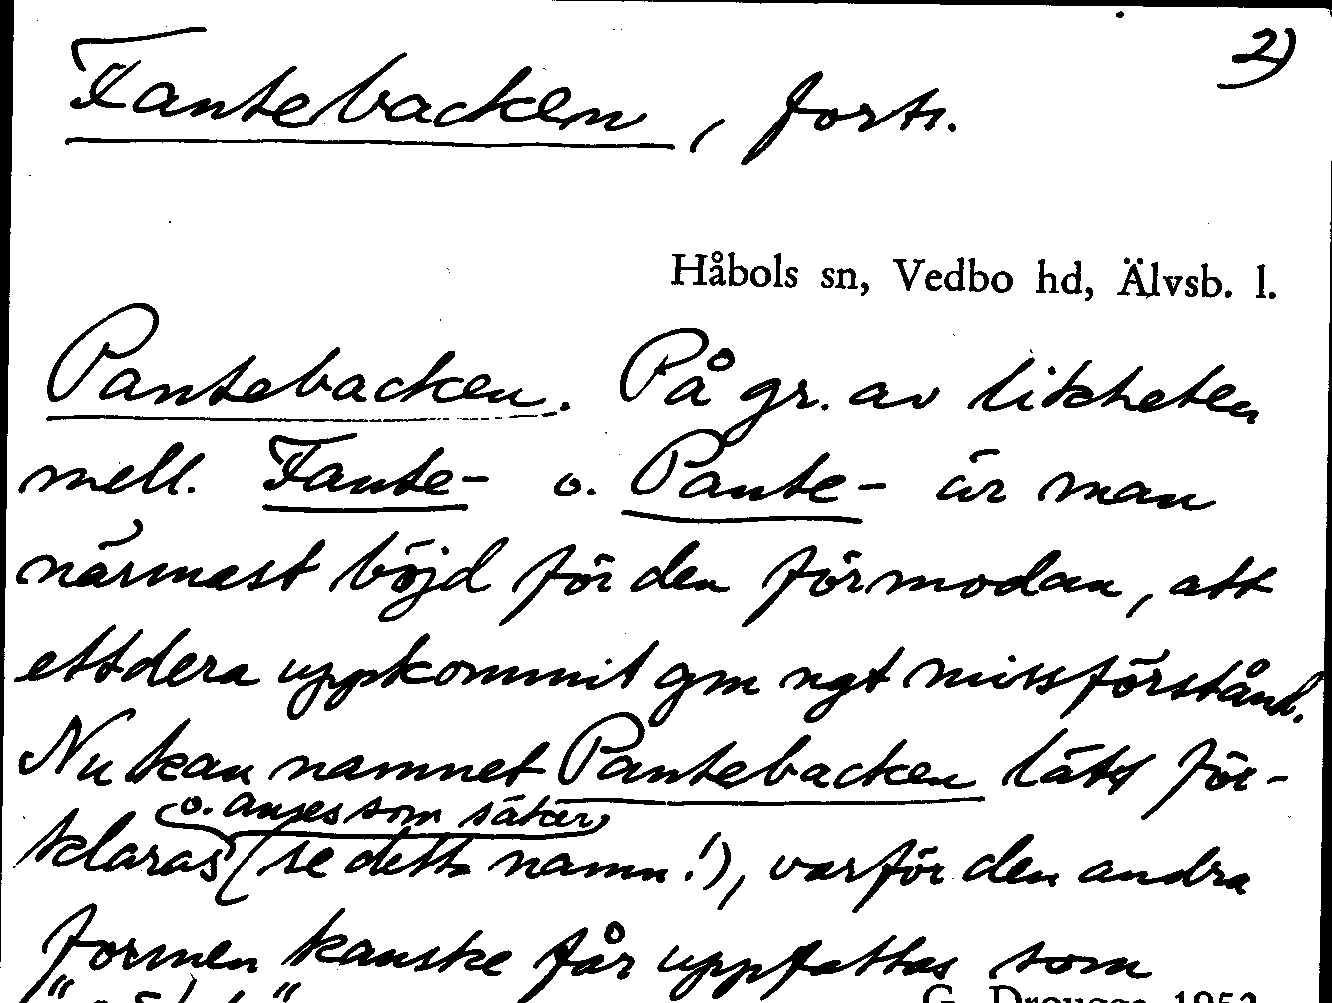 2)
Fantebacken, forts.
Håbols sn, Vedbo hd, Älvsb. l.
Pantebacken. På gr. av likheten
mell. Fante- o. Pante- är man
närmast böjd för den förmodan, att
ettdera uppkommit gm ngt missförstånd.
Nu kan namnet Pantebacken lätt för-
o. anses som säker
klaras (se detta namn!), varför den andra
formen kanske får uppfattas som
G. Drougge 1953